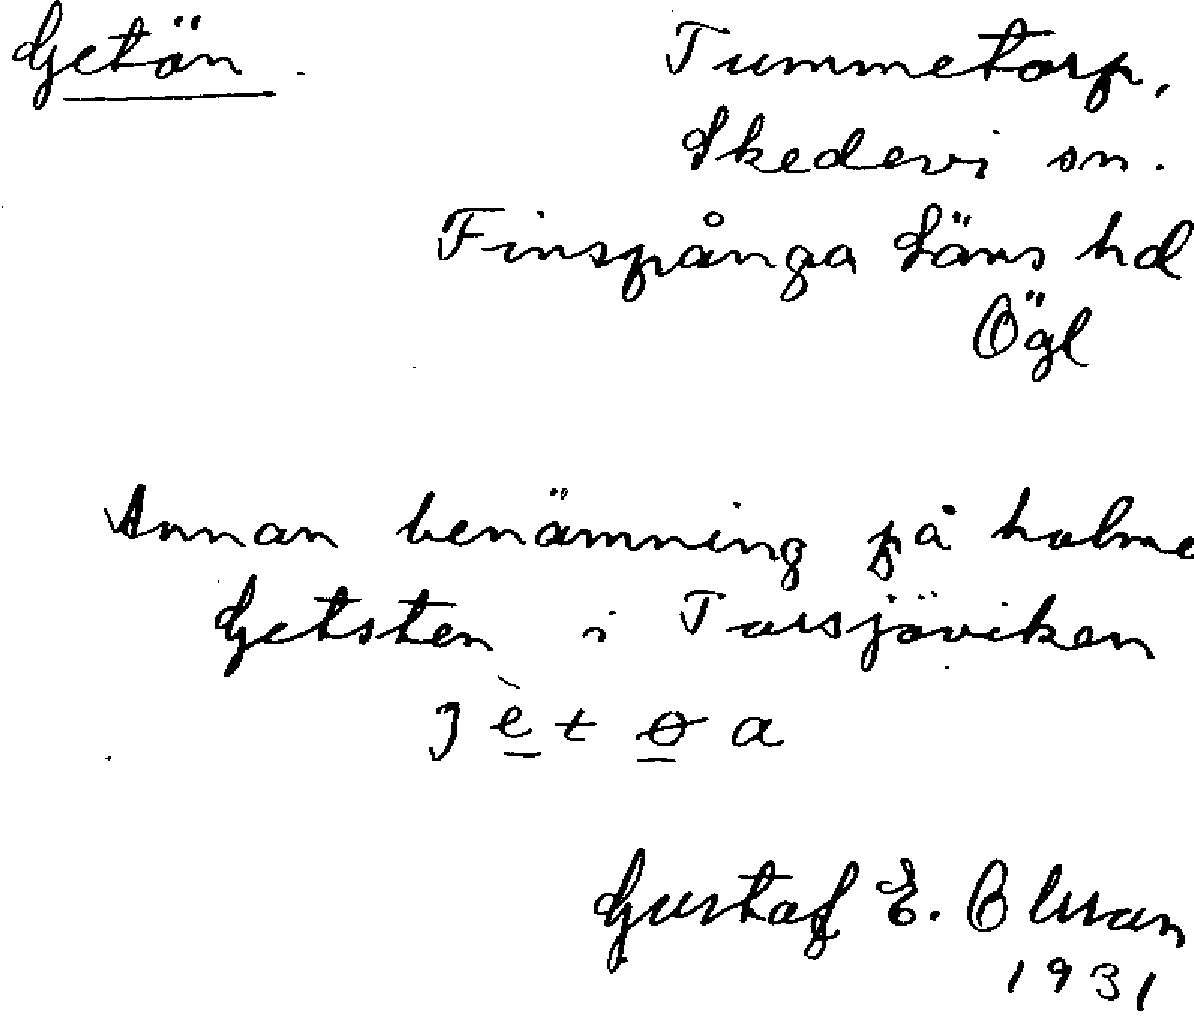 Getön.
Tummetorp,
Skedevi sn.
Finspånga Läns hd
Ögl
Annan benämning på holme
Getsten i Torsjöviken
ʒ è t ɵ a
Gustaf E. Olsson
1931